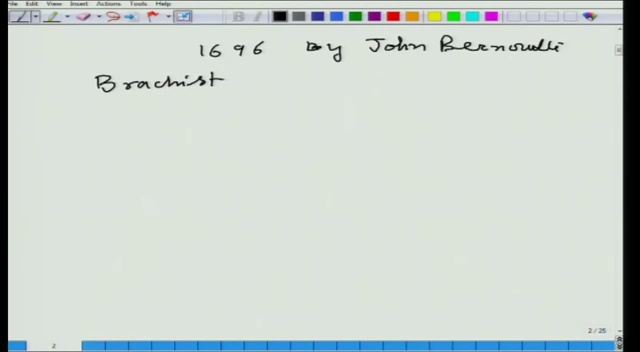 File Edit View Insert Actions Tools Help
1696 by John Bernoulli
Brachist
2 / 25
2